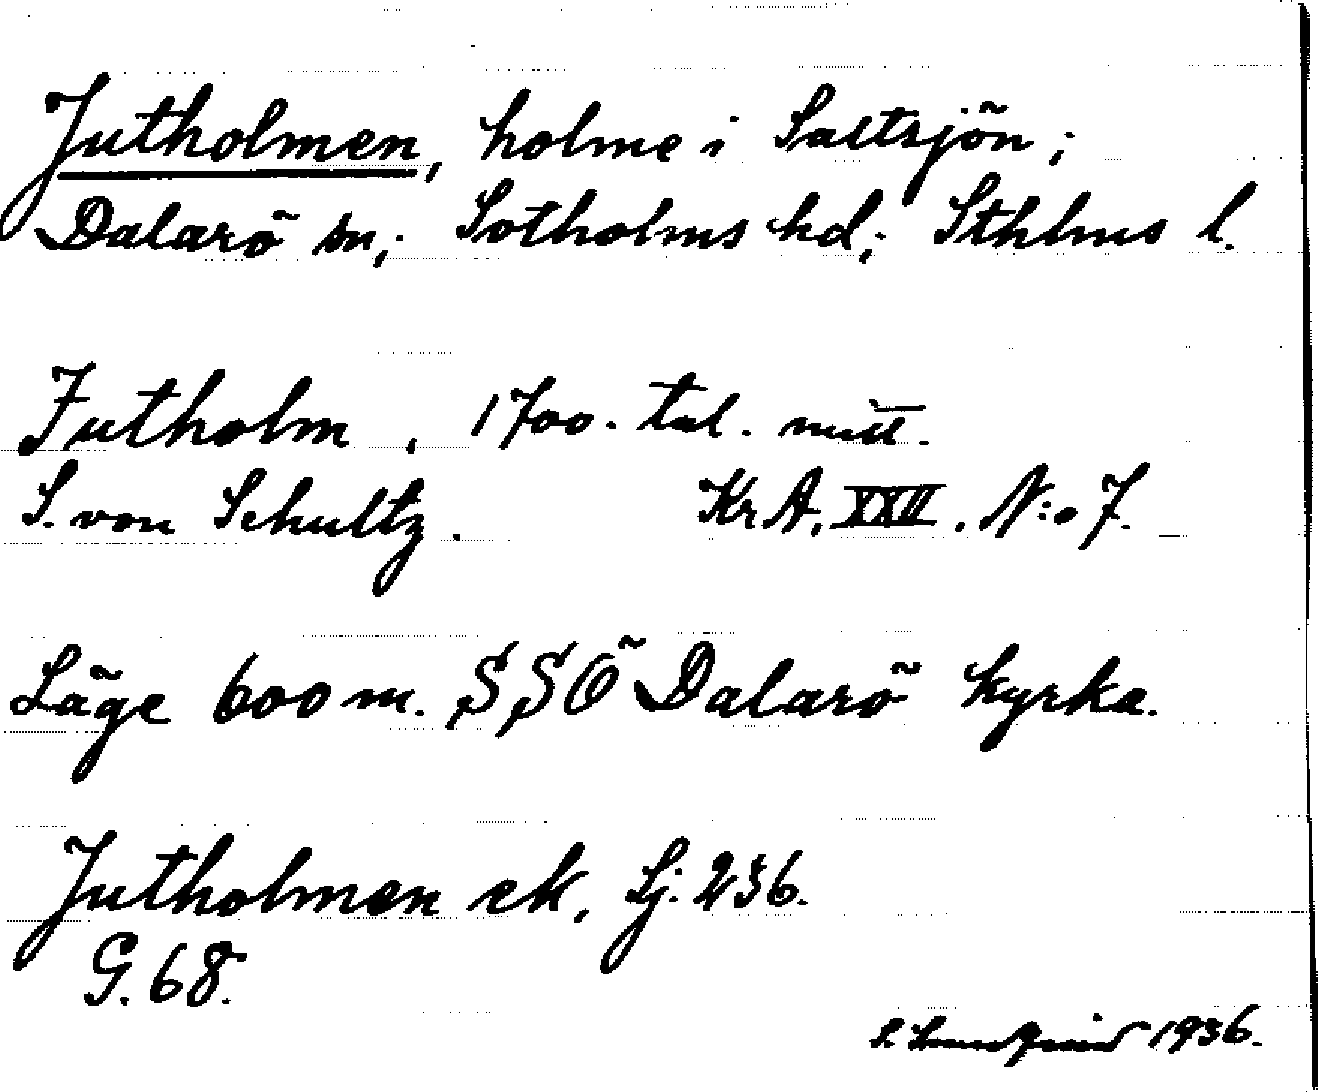 Jutholmen, holme i Saltsjön;
Dalarö sn; Sotholms hd; Sthlms l.
Jutholm, 1700-tal. mitt.
S. von Schultz. KrA. XXII. N:o 7.
Läge 600 m. SSÖ Dalarö kyrka.
Jutholmen ek, Sj. 236.
G. 68.
1936.